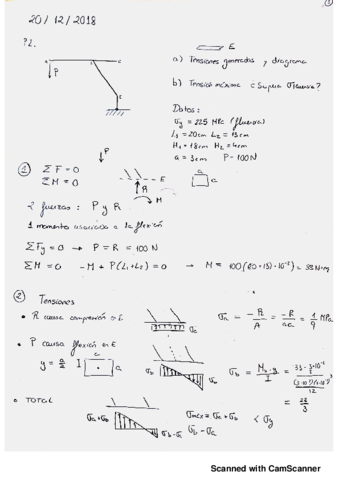 20/12/2018
P2.
A
C
P
E
a) Tensiones generadas y diagrama
b) Tensión máxima ¿Supera σfluencia?
Datos:
σy = 225 MPa (fluencia)
L1 = 20cm L2 = 13cm
H1 = 18cm H2 = 4cm
a = 3cm P = 100N
① ΣF = 0
ΣM = 0
P
E
R
M
a
a
2 fuerzas: P y R
1 momento asociado a la flexión
ΣFy = 0 → P = R = 100 N
ΣM = 0 -M + P(L1+L2) = 0 → M = 100(20+13)·10⁻² = 33 N·m
② Tensiones
• R causa compresión en E
σa
σa = -R/A = -R/a·a = 1/9 MPa
• P causa flexión en E
y = a/2 I
a
σb
σb
σb = M·y/I = 22/3
• TOTAL
σa+σb
σb-σa
σmax = σa+σb < σy
σb-σa
Scanned with CamScanner